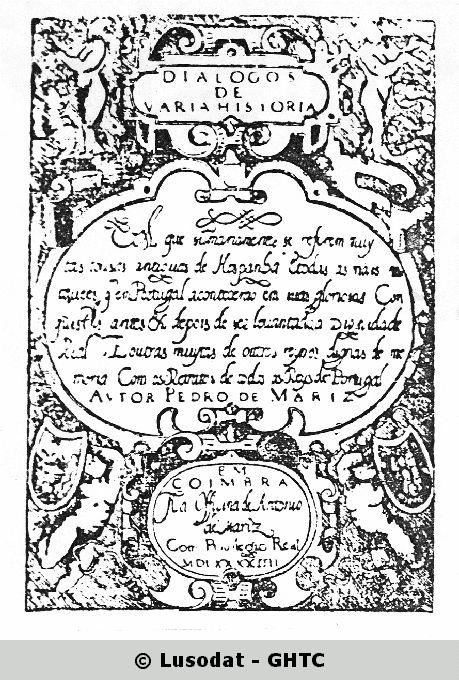 DIALOGOS
DE
VARIA HISTORIA
Em que sumariamente se referem muy
tas cousas antiguas de Hespanha E todas as mais no
taueis, q em Portugal acontecerão em suas gloriosas Con
quistas antes E depois de ser leuantado a Dignidade
Real E outras muytas de outros reynos dignas de me
moria Com os Retratos de todos os Reys de Portugal
AVTOR PEDRO DE MARIZ
EM
COIMBRA
Na Officina de Antonio
de Mariz
Com Priuilegio Real
MDLXXXXIIII
© Lusodat - GHTC